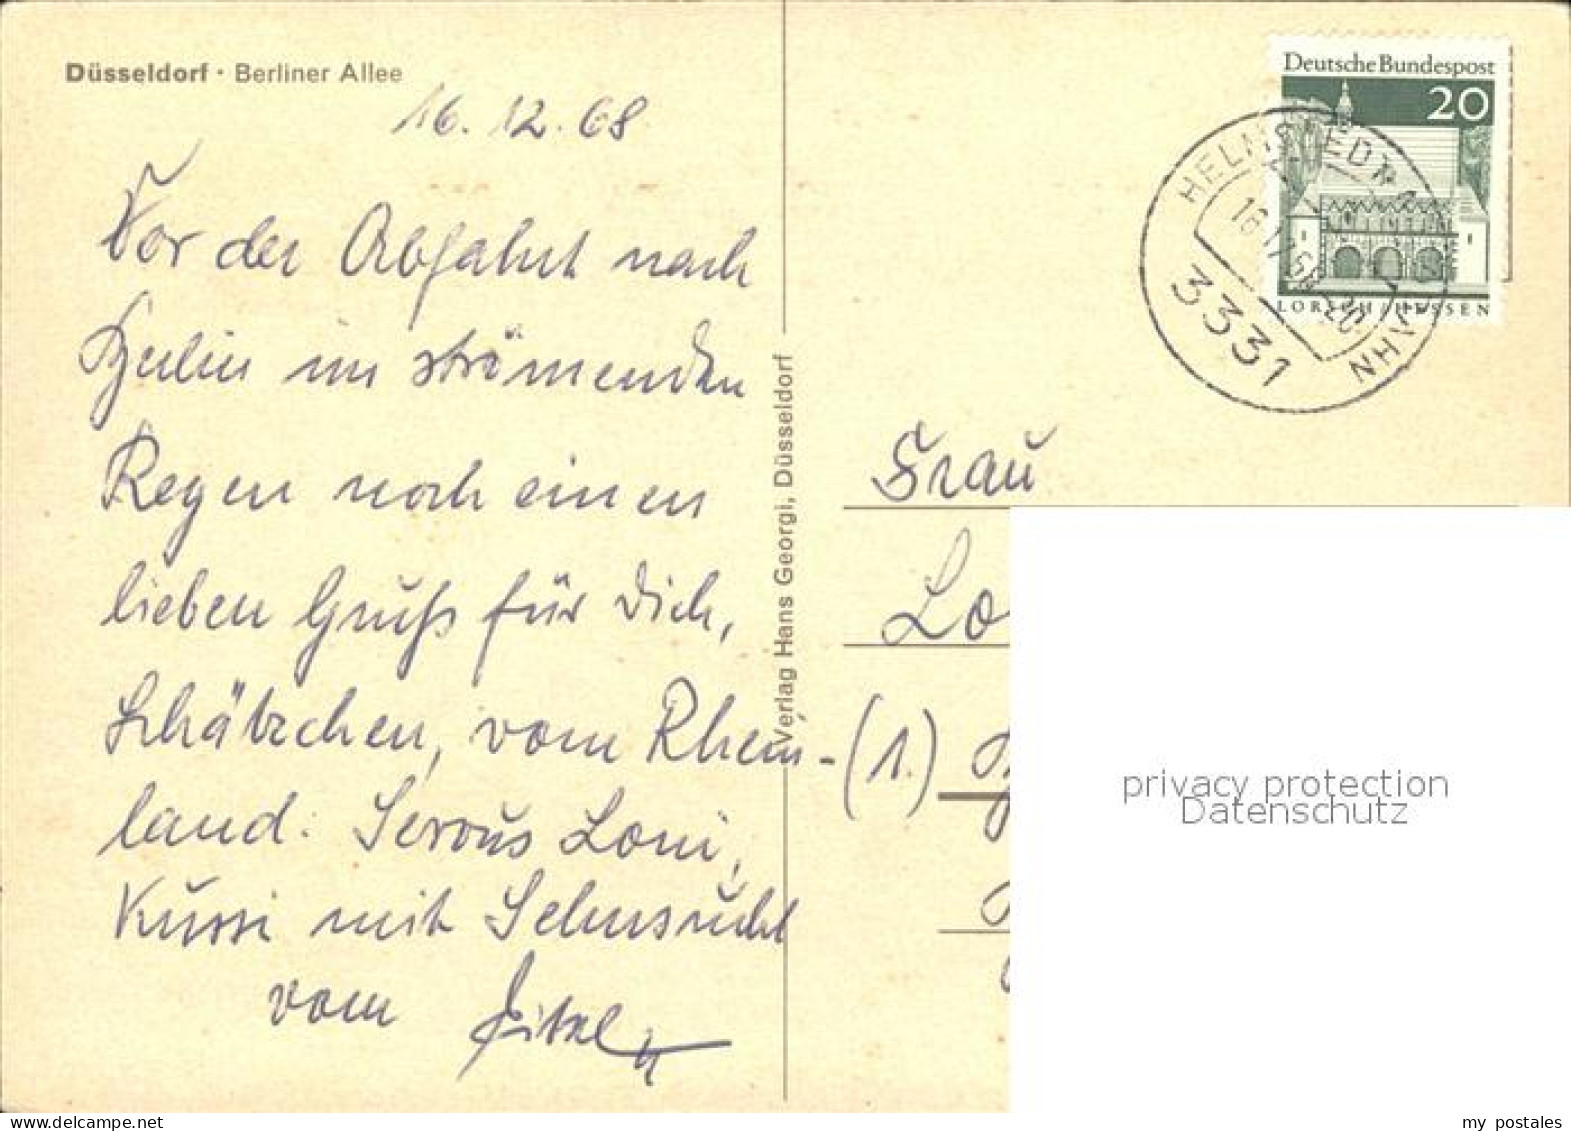 Düsseldorf · Berliner Allee
16. 12. 68
Vor der Abfahrt nach
Berlin im strömenden
Regen noch einen
lieben Gruß für Dich,
Schätzchen, vom Rhein-
land. Servus Loni,
Kussi mit Sehnsucht
vom
Verlag Hans Georgi, Düsseldorf
Deutsche Bundespost
20
LORSCH/HESSEN
3331
Frau
Lo
(1.)
privacy protection
Datenschutz
my postales